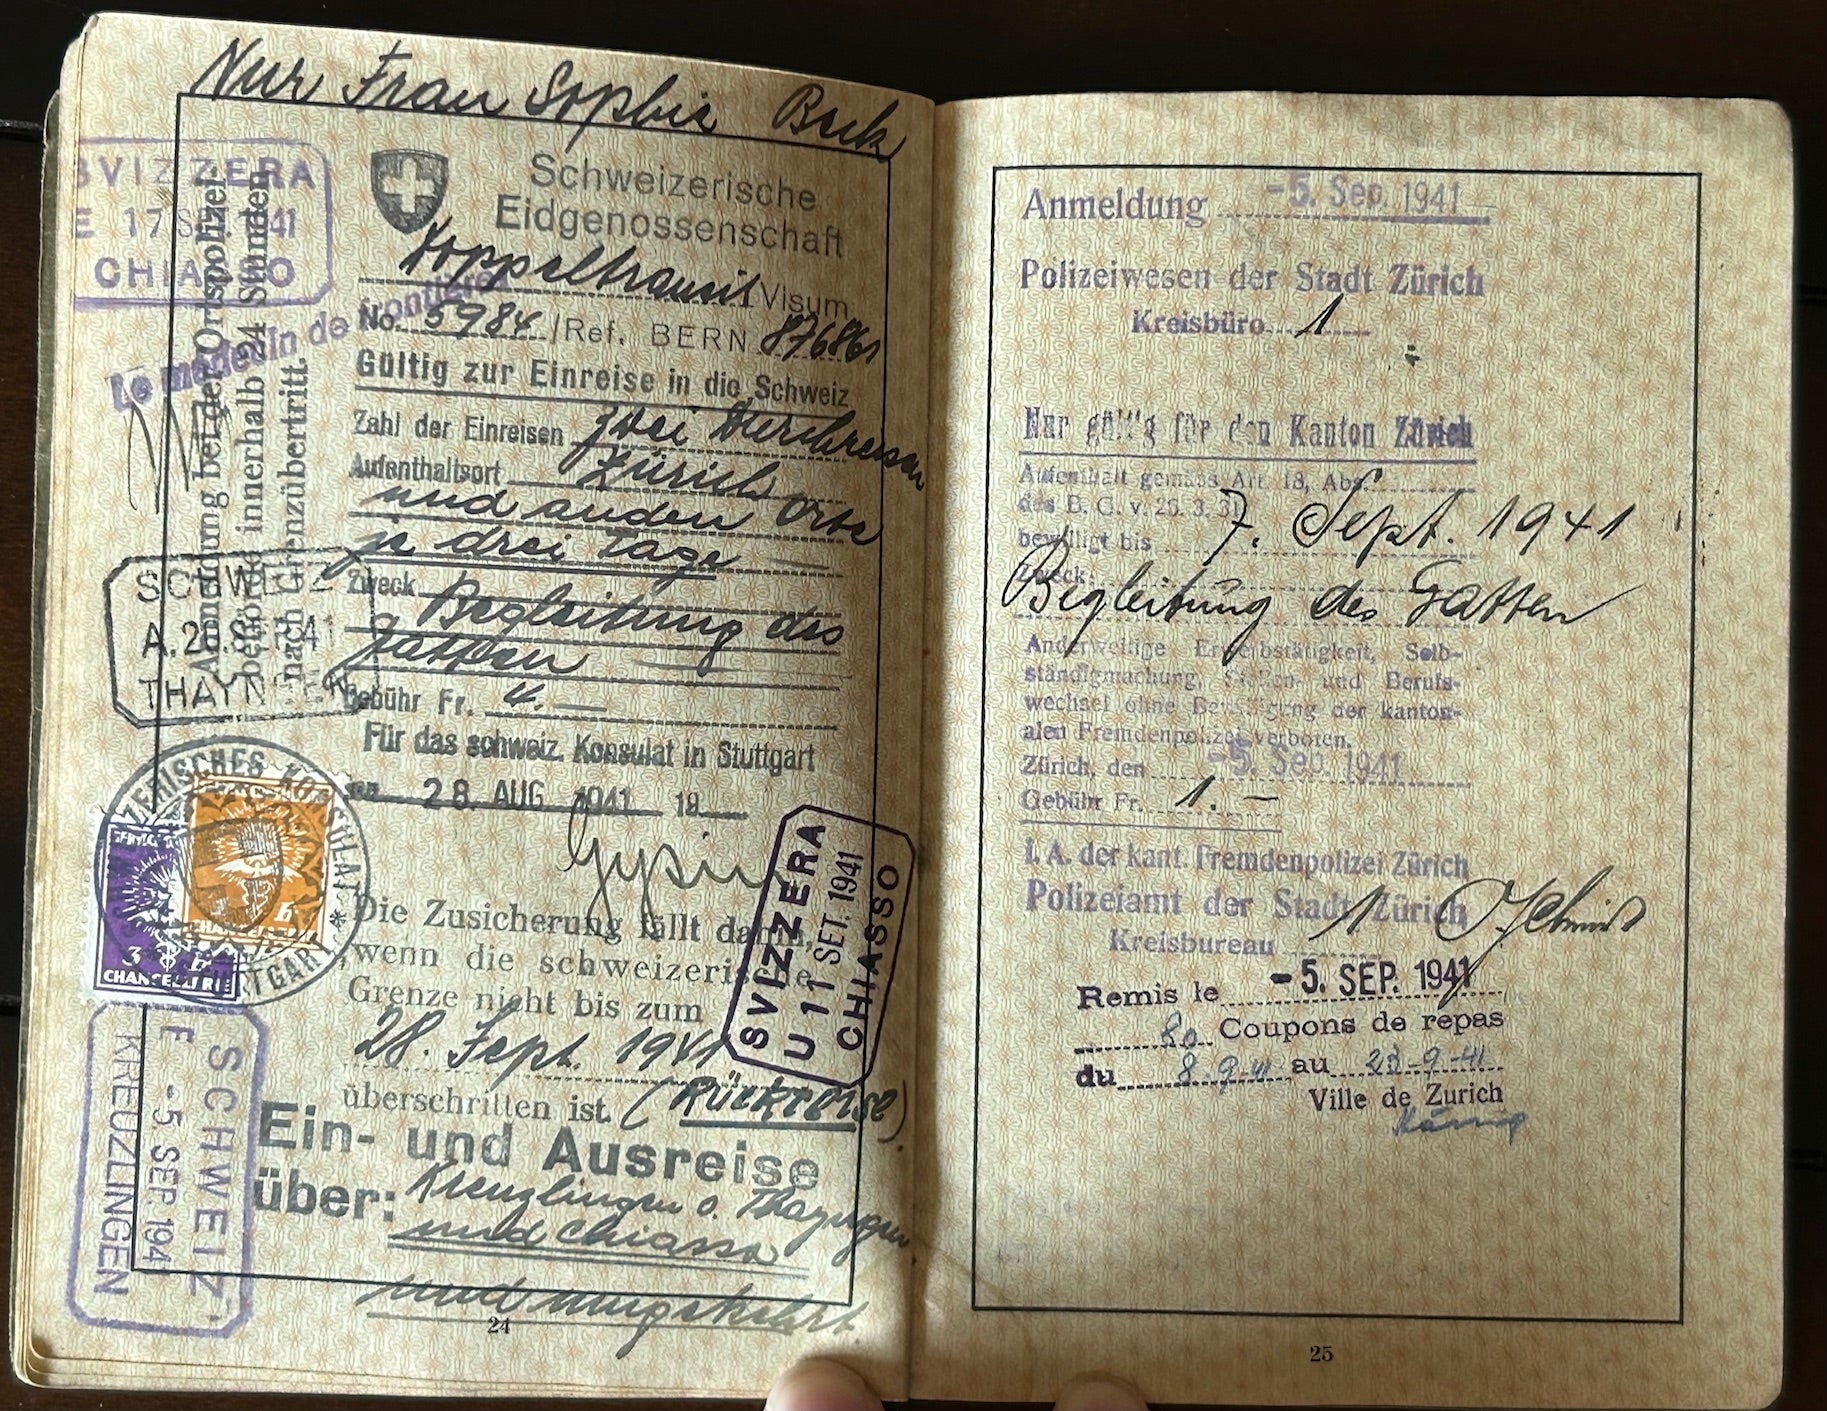 Nur Frau Sophie Bock
SVIZZERA
E 17 S 41
CHIASSO
Le médecin de frontière
Anmeldung bei der Ortspolizei-
behörde innerhalb 24 Stunden
nach Grenzübertritt.
Schweizerische
Eidgenossenschaft
Doppeltransit Visum
No. 5984 /Ref. BERN 876861
Gültig zur Einreise in die Schweiz
Zahl der Einreisen zwei Durchreisen
Aufenthaltsort Zürich
und andere Orte
je drei Tage
Zweck Begleitung des
Gatten
Gebühr Fr. 4.—
Für das schweiz. Konsulat in Stuttgart
28. AUG. 1941 19
Gysin
SCHWEIZ
A. 2 SEP. 41
THAYNGEN
3
CHANCELLERIE
Die Zusicherung fällt dahin,
wenn die schweizerische
Grenze nicht bis zum
28. Sept. 1941
überschritten ist. (Rückreise).
SVIZZERA
U 11 SET. 1941
CHIASSO
SCHWEIZ
E -5 SEP. 1941
KREUZLINGEN
Ein- und Ausreise
über: Kreuzlingen o. Thayngen
und Chiasso
und umgekehrt.
24
Anmeldung -5. Sep. 1941
Polizeiwesen der Stadt Zürich
Kreisbüro 1
Nur gültig für den Kanton Zürich
Aufenthalt gemäss Art. 18, Abs.
des B. G. v. 26. 3. 31
bewilligt bis 7. Sept. 1941
Zweck:
Begleitung des Gatten
Anderweitige Erwerbstätigkeit, Selb-
ständigmachung, Stellen- und Berufs-
wechsel ohne Bewilligung der kanton-
alen Fremdenpolizei verboten.
Zürich, den -5. Sep. 1941
Gebühr Fr. 1.—
i. A. der kant. Fremdenpolizei Zürich
Polizeiamt der Stadt Zürich
Kreisbureau 1
Remis le -5. SEP. 1941
80 Coupons de repas
du 8.9.41 au 28-9-41
Ville de Zurich
25